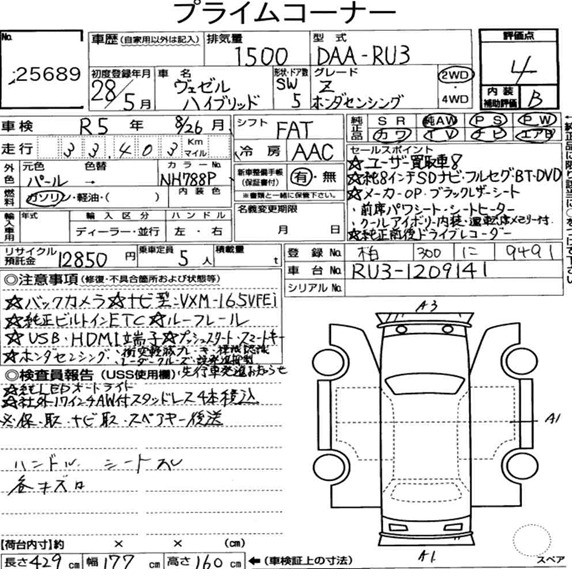 プライムコーナー
No. 25689
車歴 (自家用以外は記入) 排気量 1500 型式 DAA-RU3
評価点 4
内装補助評価 B
初度登録年月 28年5月 車名 ヴェゼル ハイブリッド 形状・ドア数 SW 5 グレード Z ホンダセンシング 2WD・4WD
車検 R5年 8/26月 シフト FAT
純正品 SR 純AW PS PW
カワ TV ナビ エアB
走行 33,403 Km マイル 冷房 AAC
セールスポイント
☆ユーザー買取車8
☆純8インチSDナビ・フルセグ・BT・DVD
☆メーカーOP・ブラックレザーシート
・前席パワーシート・シートヒーター
・クールアイボリー内装・運転席メモリー付
☆純正前後ドライブレコーダー
外色 元色 パール 色替 → カラーNo. NH788P
新車整備手帳(保証書付) 有・無
※書類と一緒に保管して下さい。
燃料 ガソリン・軽油・( )
名義変更期限 月 日
輸入車用 年 輸入区分 ディーラー・並行 ハンドル 左・右
リサイクル預託金 12850円 乗車定員 5人 積載量 t
登録No. 柏 300 に 9491
車台No. RU3-1209141
シリアルNo.
◎注意事項 (修復・不具合箇所および状態等)
☆バックカメラ ☆ナビ型:VXM-165VFEi
☆純正ビルトインETC ☆ルーフレール
☆USB・HDMI端子 ☆プッシュスタート・スマートキー
☆ホンダセンシング
◎検査員報告 (USS使用欄) 先行車発進お知らせ
☆純LEDオートライト
☆社外17インチAW付スタッドレス4本積込
※保・取・ナビ取・スペアキー後送
ハンドル シートスレ
各キズ
A3
A1
A1
【荷台内寸】約 × × (cm)
長さ429cm 幅177cm 高さ160cm ←(車検証上の寸法)
スペア